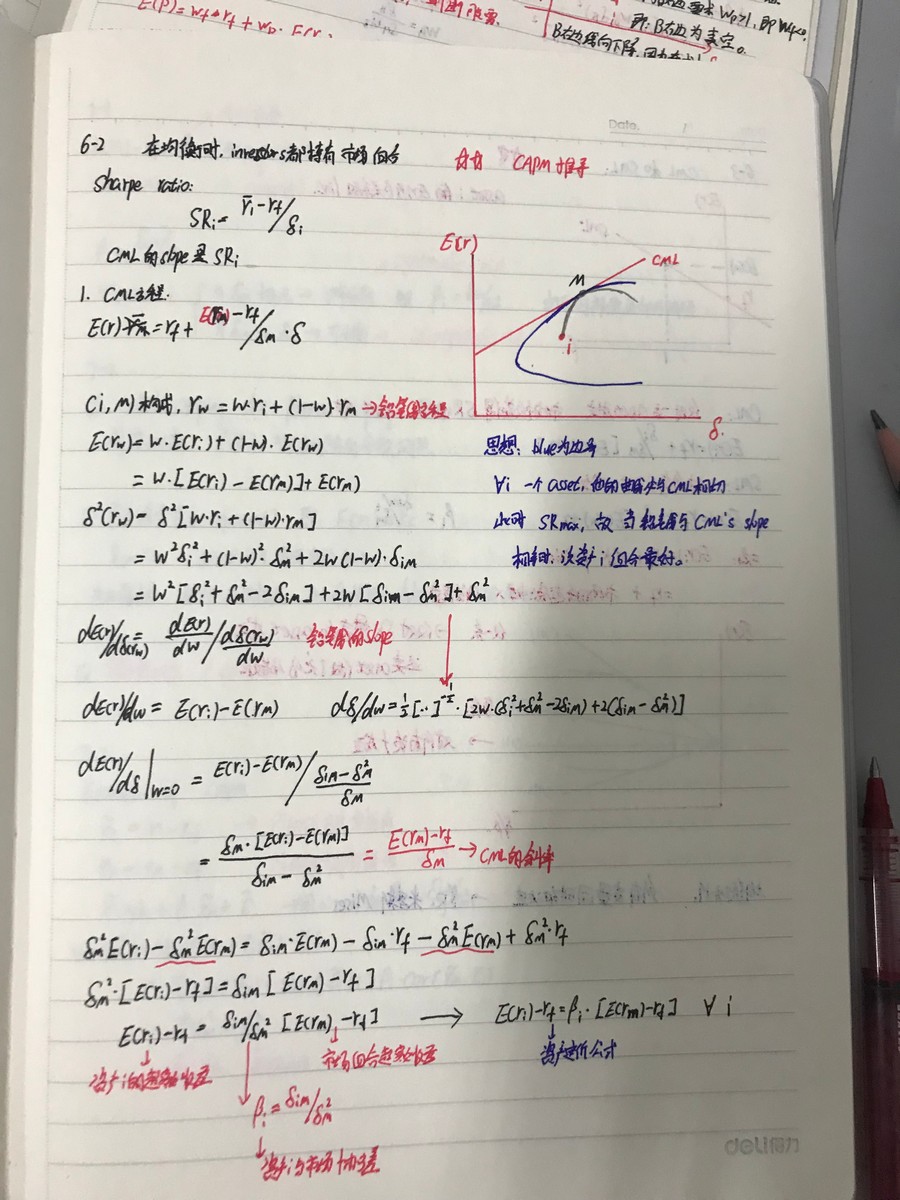 E(P)=wf·rf+wp·E(r
B右边为卖空。
Date.
6-2 在均衡时, investors都持有市场组合
CAPM推导
Sharpe ratio:
SRi = r̄i-rf/δi
CML的slope是SRi
1. CML方程:
E(r) = rf + E(rm)-rf/δm·δ
E(r)
CML
M
i
δ
(i,M)构成, rw = w·ri+(1-w)·rm ⇒铅笔图方程
E(rw) = w·E(ri)+(1-w)·E(rw)
= w·[E(ri)-E(rm)]+E(rm)
δ²(rw) = δ²[w·ri+(1-w)·rm]
= w²δi²+(1-w)²·δm²+2w(1-w)·δim
= w²[δi²+δm²-2δim]+2w[δim-δm²]+δm²
思想: blue为边界
∀i 一个asset, 他的曲线与CML相切
此时 SRmax, 故 当铅笔图与CML's slope
相等时, 该资产i组合最好。
dE(r)/dδ(rw) = dE(r)/dw / dδ(rw)/dw 铅笔图的slope
dE(r)/dw = E(ri)-E(rm) dδ/dw = ½[··]^-½·[2w·(δi²+δm²-2δim)+2(δim-δm²)]
dE(r)/dδ|w=0 = E(ri)-E(rm) / δim-δm²/δm
= δm·[E(ri)-E(rm)]/δim-δm² = E(rm)-rf/δm → CML的斜率
δm²E(ri)-δm²E(rm) = δim·E(rm)-δim·rf-δm²E(rm)+δm²·rf
δm²·[E(ri)-rf] = δim[E(rm)-rf]
E(ri)-rf = δim/δm² [E(rm)-rf] → E(ri)-rf=βi·[E(rm)-rf] ∀i
资产i的超额收益
市场组合超额收益
资产定价公式
βi = δim/δm²
资产i与市场协方差
deli得力